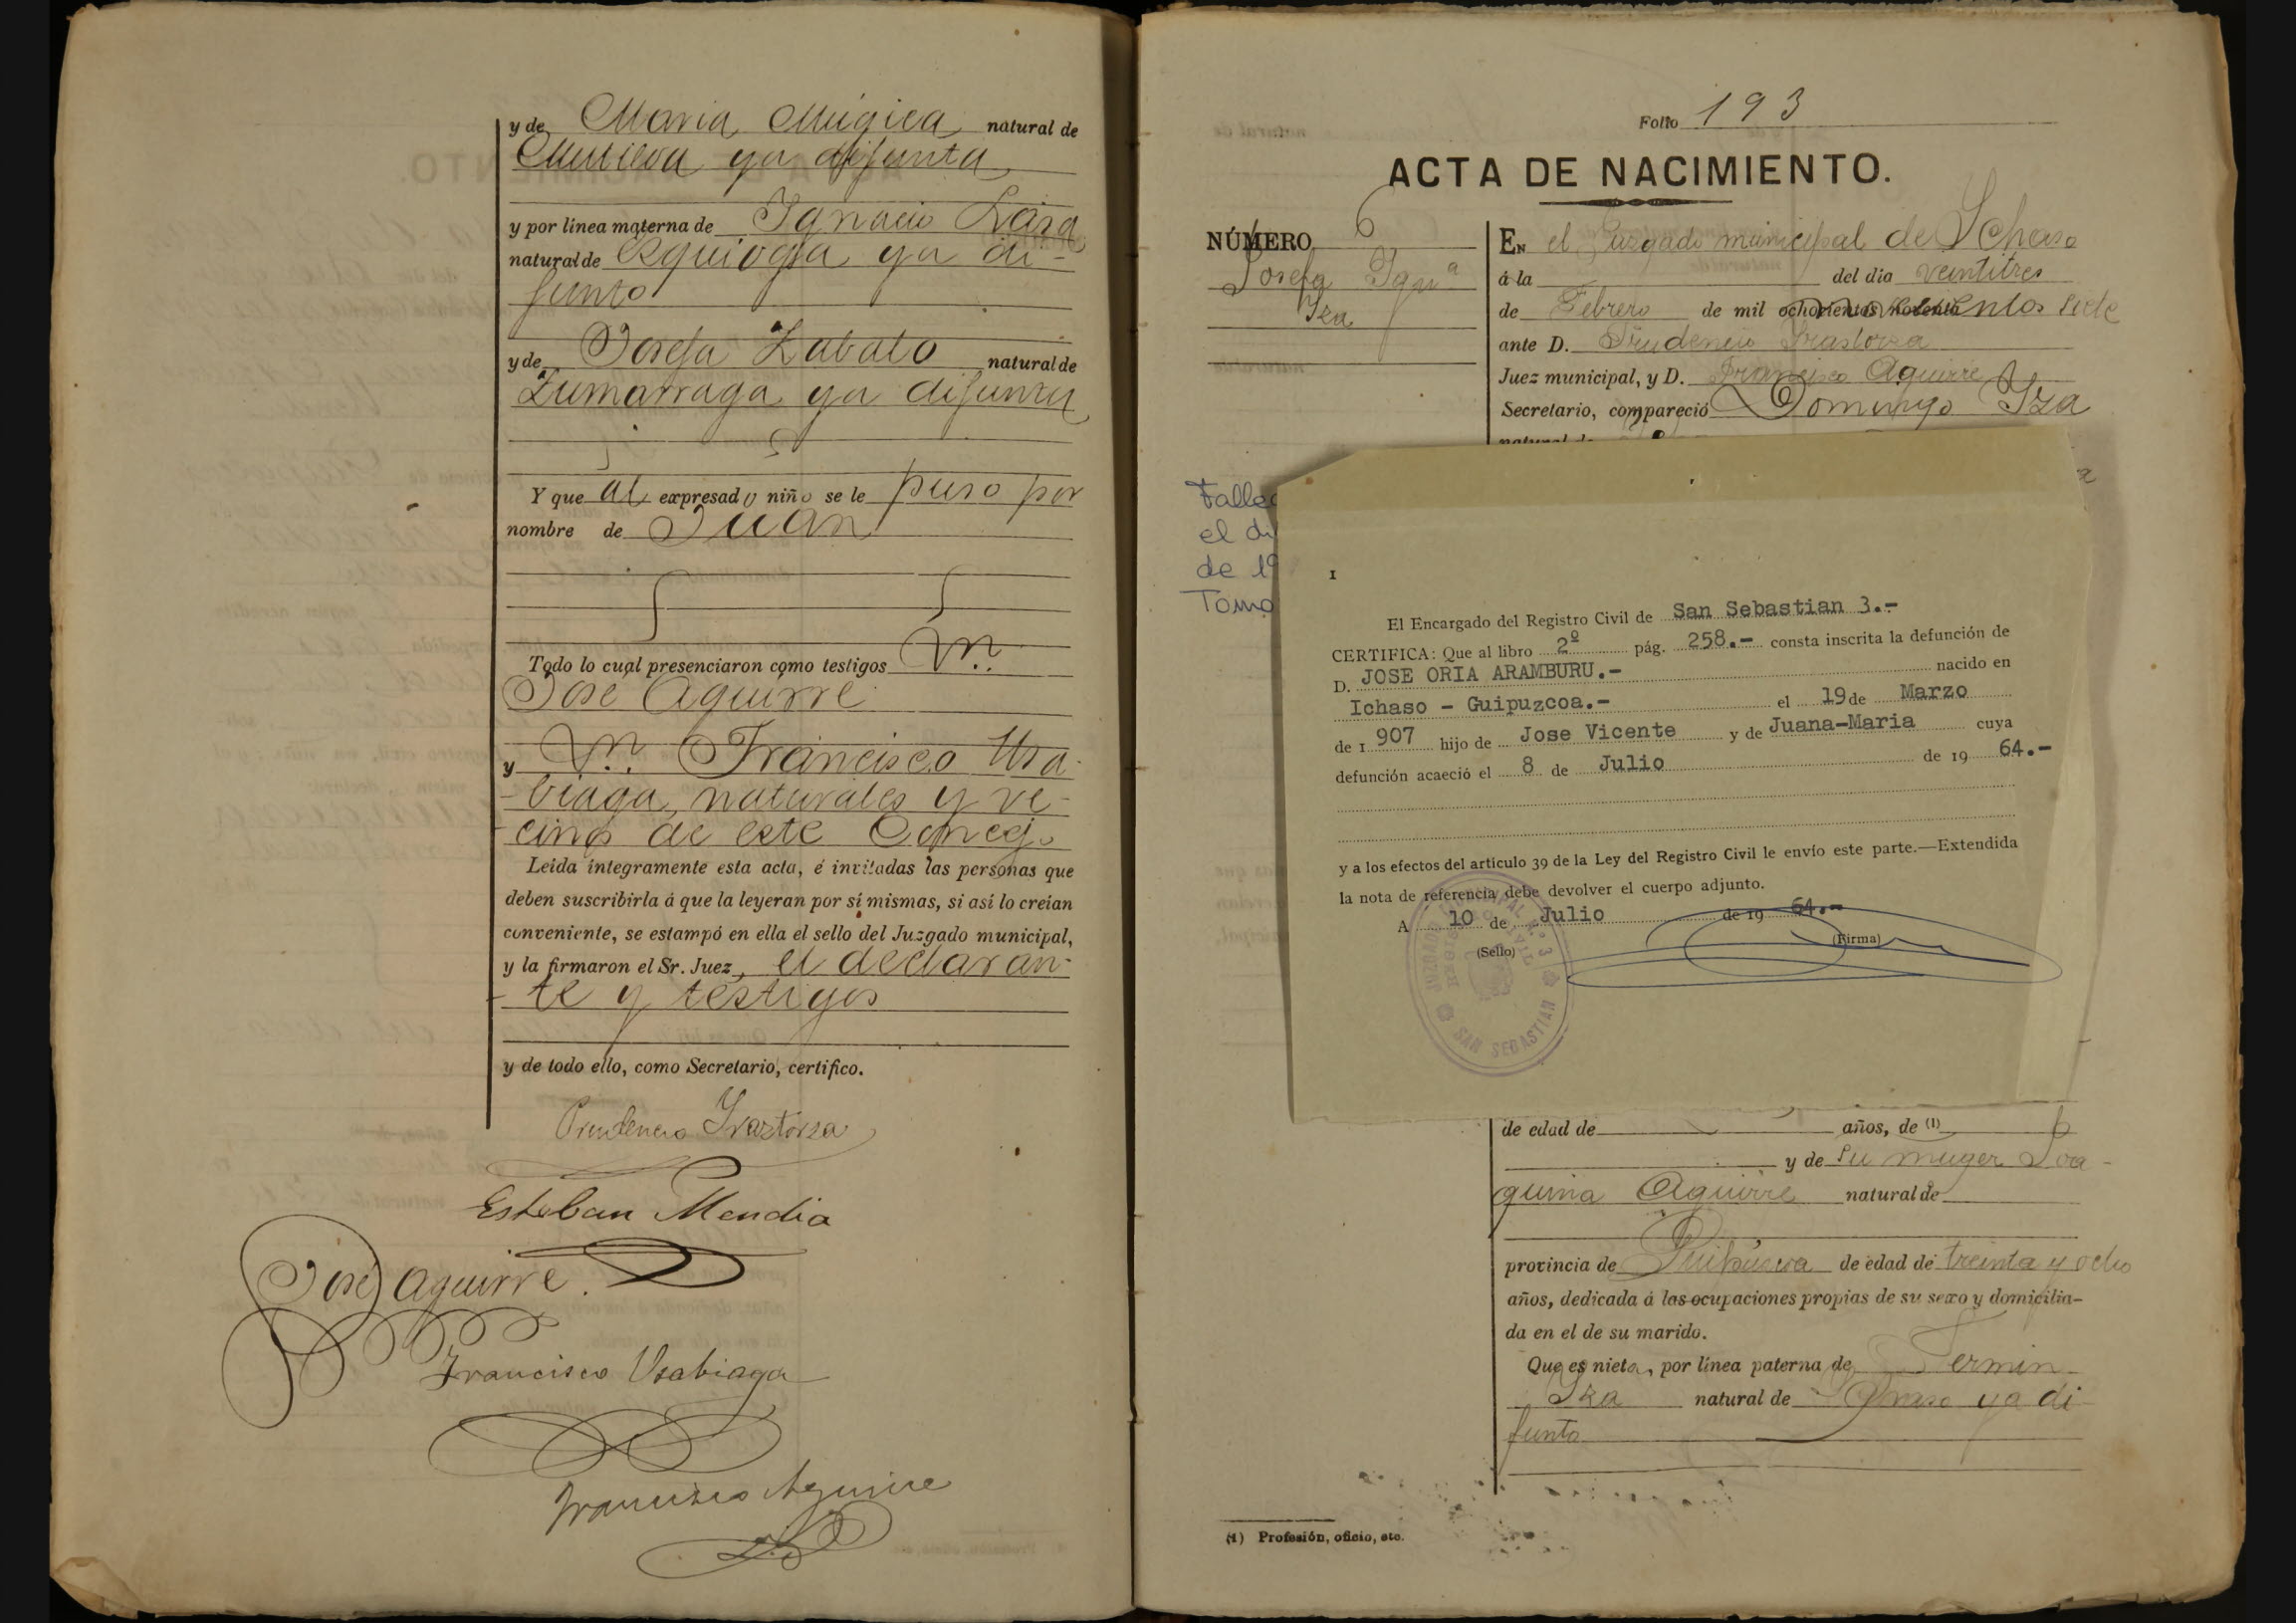 y de Maria Múgica natural de
Mutiloa ya difunta
y por línea materna de Ignacio Lasa
natural de Ezquioga ya di-
funto
y de Josefa Zabalo natural de
Zumarraga ya difunta
Y que al expresado niño se le puso por
nombre de Juan
Todo lo cual presenciaron como testigos
José Aguirre
y Francisco Usa-
-biaga, naturales y ve-
-cinos de este Concejo
Leída íntegramente esta acta, é invitadas las personas que
deben suscribirla á que la leyeran por sí mismas, si así lo creían
conveniente, se estampó en ella el sello del Juzgado municipal,
y la firmaron el Sr. Juez, el declaran-
-te y testigos
y de todo ello, como Secretario, certifico.
Prudencio Yraztorza
Esteban Mendia
José Aguirre.
Francisco Usabiaga
Francisco Aguirre
Folio 193
ACTA DE NACIMIENTO.
NÚMERO 6
Josefa Ignª
Iza
EN el Juzgado municipal de Ichaso
á la del dia veintitres
de Febrero de mil novecientos siete
ante D. Prudencio Yrastorza
Juez municipal, y D. Francisco Aguirre
Secretario, compareció Domingo Iza
natural de
Fallec
el di
de 19
Tomo
I
El Encargado del Registro Civil de San Sebastian 3.-
CERTIFICA: Que al libro 2º pág. 258.- consta inscrita la defunción de
D. JOSE ORIA ARAMBURU.- nacido en
Ichaso - Guipuzcoa.- el 19 de Marzo
de 1 907 hijo de Jose Vicente y de Juana-Maria cuya
defunción acaeció el 8 de Julio de 19 64.-
y a los efectos del artículo 39 de la Ley del Registro Civil le envío este parte.—Extendida
la nota de referencia debe devolver el cuerpo adjunto.
A 10 de Julio de 19 64.-
(Sello)
(Firma)
JUZGADO MUNICIPAL Nº 3
SAN SEBASTIAN
de edad de años, de (1)
y de su muger Joa-
quina Aguirre natural de
provincia de Guipúzcoa de edad de treinta y ocho
años, dedicada á las ocupaciones propias de su sexo y domicilia-
da en el de su marido.
Que es nieta, por línea paterna de Fermin
Iza natural de Ichaso ya di-
funto
(1) Profesión, oficio, etc.